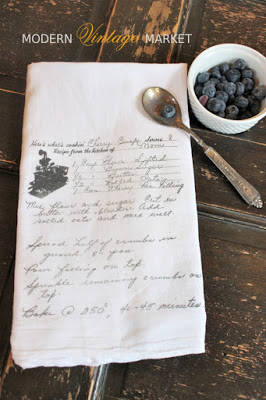 MODERN Vintage MARKET
Here's what's cookin' Cherry Crisp Serves 8
Recipe from the kitchen of Mom
1 Cup Flour Sifted
Brown Sugar
Butter
Rolled Oats
1 Can Cherry Pie Filling
Mix flour and sugar. Cut in
butter with blender. Add
rolled oats and mix well.
Spread half of crumbs in
round 8" pan.
Pour filling on top.
Sprinkle remaining crumbs on
top.
Bake @ 350° 40-45 minutes